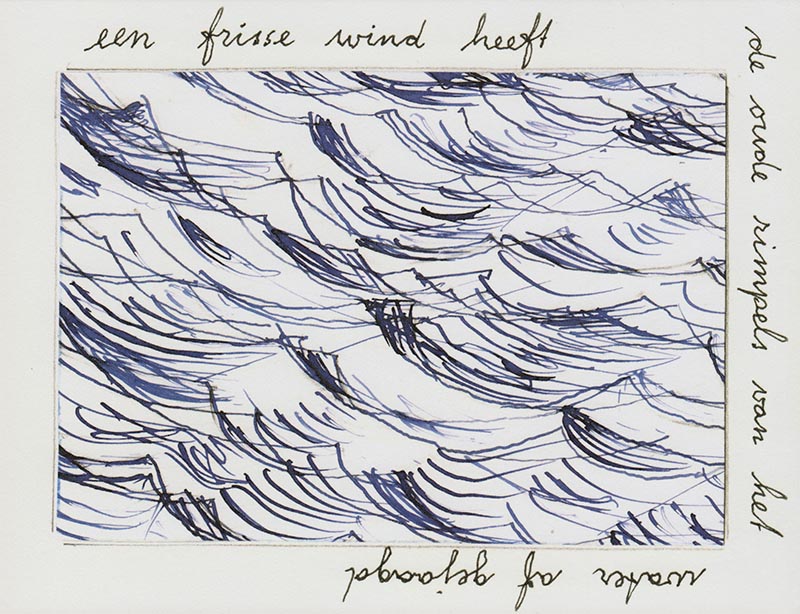 een frisse wind heeft
de oude rimpels van het
water af gejaagd